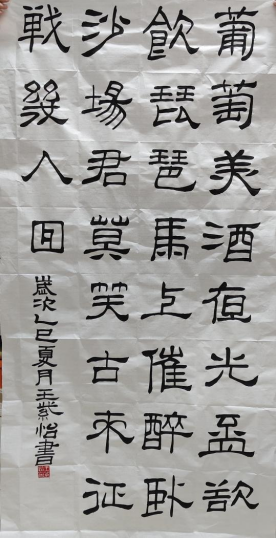 葡萄美酒夜光盃欲
飲琵琶馬上催醉卧
沙場君莫笑古来征
戰幾人回
歲次乙巳夏月王紫怡書